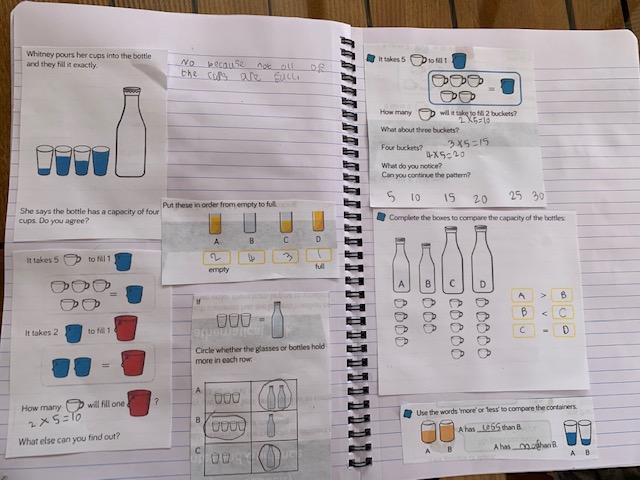 Whitney pours her cups into the bottle
and they fill it exactly.
She says the bottle has a capacity of four
cups. Do you agree?
No because not all of
the cups are full.
Put these in order from empty to full.
A B C D
2 3 1
empty full
It takes 5 to fill 1
=
It takes 2 to fill 1
=
How many will fill one ?
2 x 5=10
What else can you find out?
If
=
Circle whether the glasses or bottles hold
more in each row:
A
B
C
It takes 5 to fill 1
=
How many will it take to fill 2 buckets?
2 x 5=10
What about three buckets?
3 x 5=15
Four buckets?
4 x 5=20
What do you notice?
Can you continue the pattern?
5 10 15 20 25 30
Complete the boxes to compare the capacity of the bottles:
A B C D
A > B
B < C
C = D
Use the words 'more' or 'less' to compare the containers.
A has less than B.
A B
A has more than B.
A B